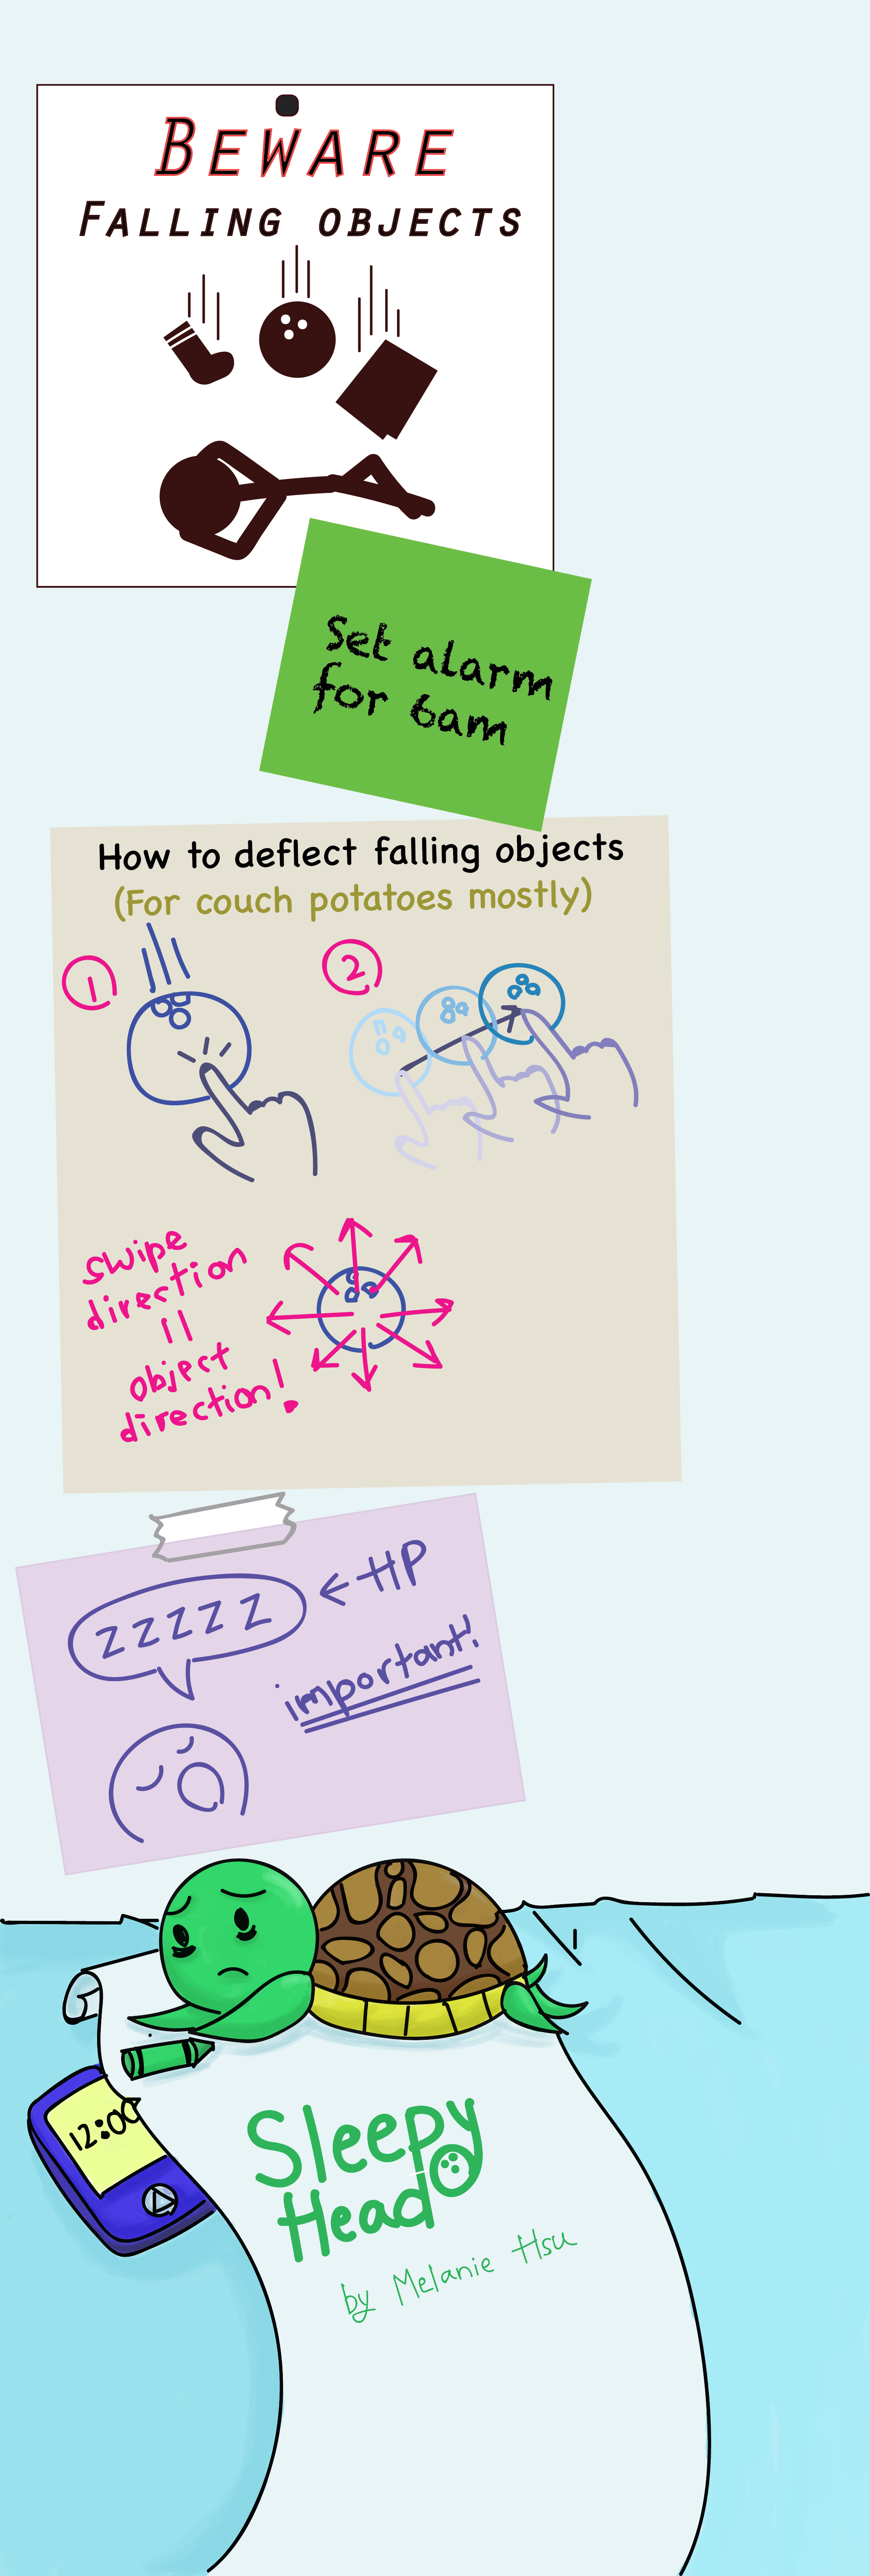 BEWARE
FALLING OBJECTS
Set alarm
for 6am
How to deflect falling objects
(For couch potatoes mostly)
1
2
swipe
direction
=
object
direction!
ZZZZZ ← HP
important!
12:00
Sleepy
Head
by Melanie Hsu